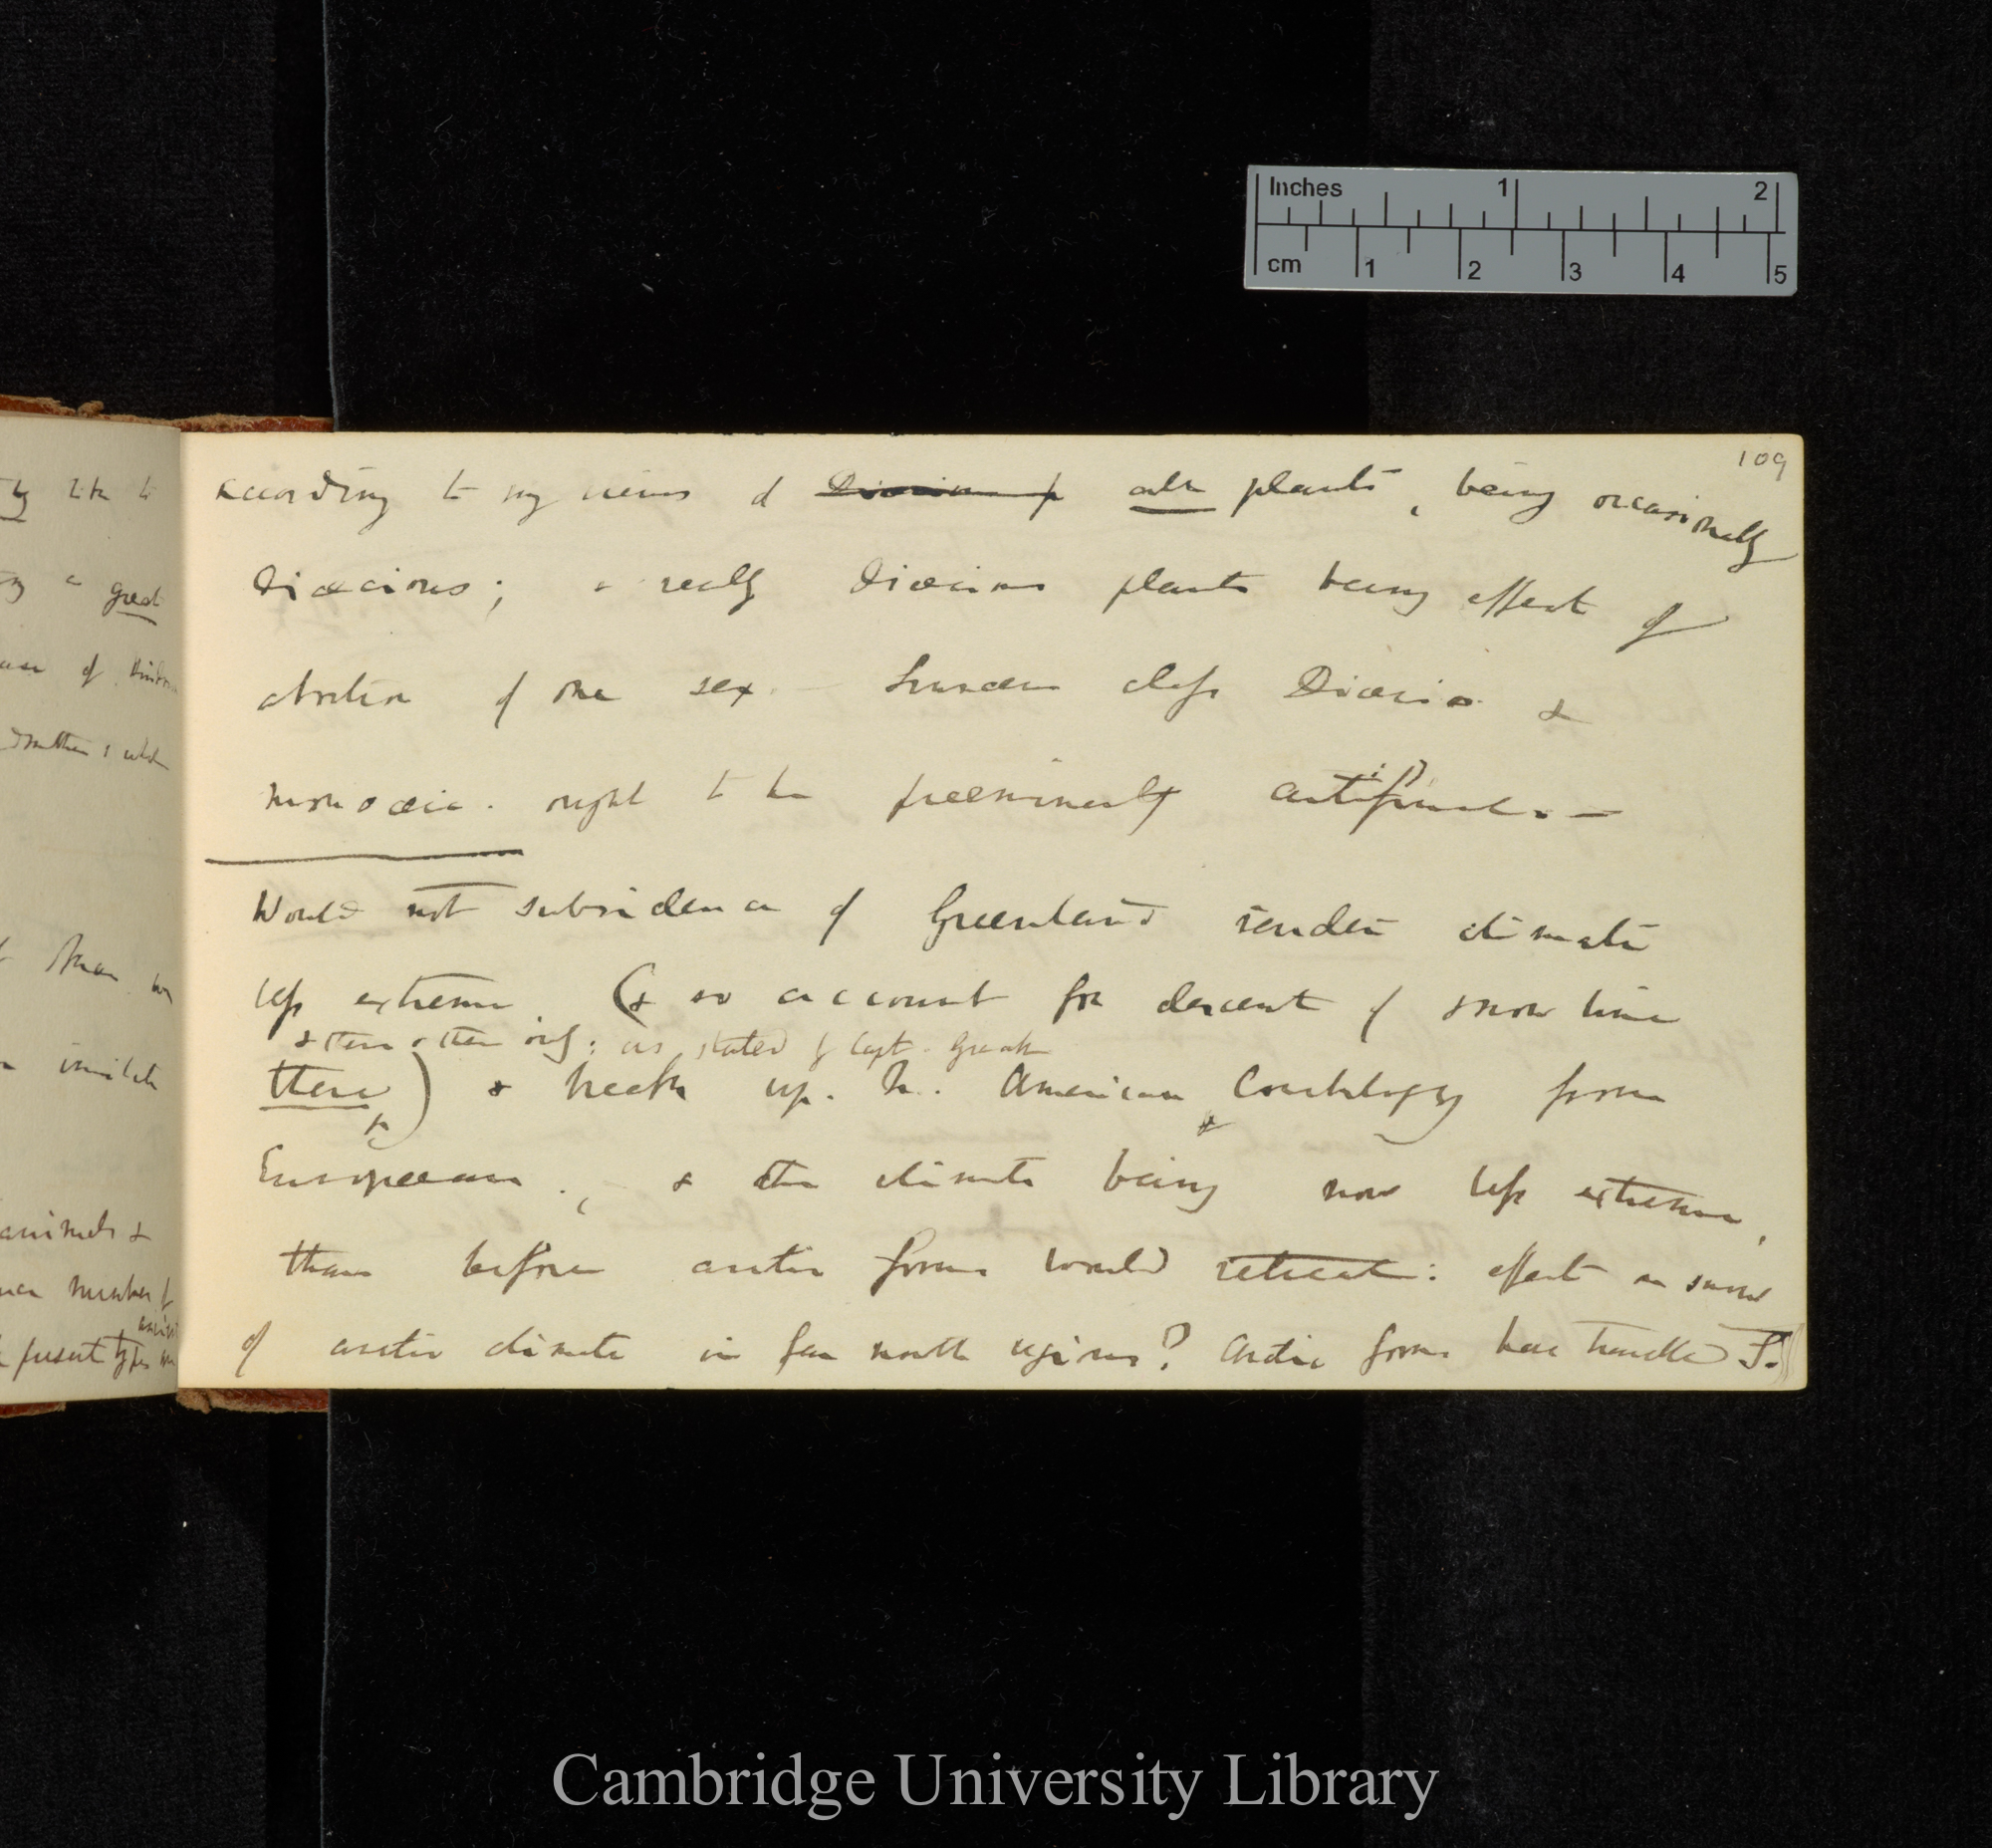 Inches 1 2
cm 1 2 3 4 5
109
according to my views of all plants, being occasionally
dioecious; & really dioecious plants being effect of
abortion of one sex. — Linnaean class Dioecia &
monoecia. ought to be preeminently artificial. —
Would not subsidence of Greenland render climate
less extreme. (& so account for descent of snow line
& then & then only: as stated by Capt. Graah
there) & break up. N. American Conchology from
European., & the climate being now less extreme,
than before arctic forms would retreat: effect on snow
of arctic climate in far north regions? Arctic forms have travelled S.
great
of
animals &
number of
present types
Cambridge University Library